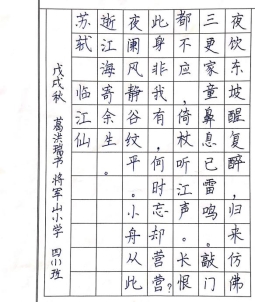 夜饮东坡醒复醉,归来仿佛
三更家童鼻息已雷鸣敲门
都不应,倚杖听江声。长恨
此身非我有,何时忘却营营?
夜阑风静谷纹平。小舟从此
逝江海寄余生。
苏轼 临江仙
戊戌秋 葛洪瑞书 将军山小学 四(1)班